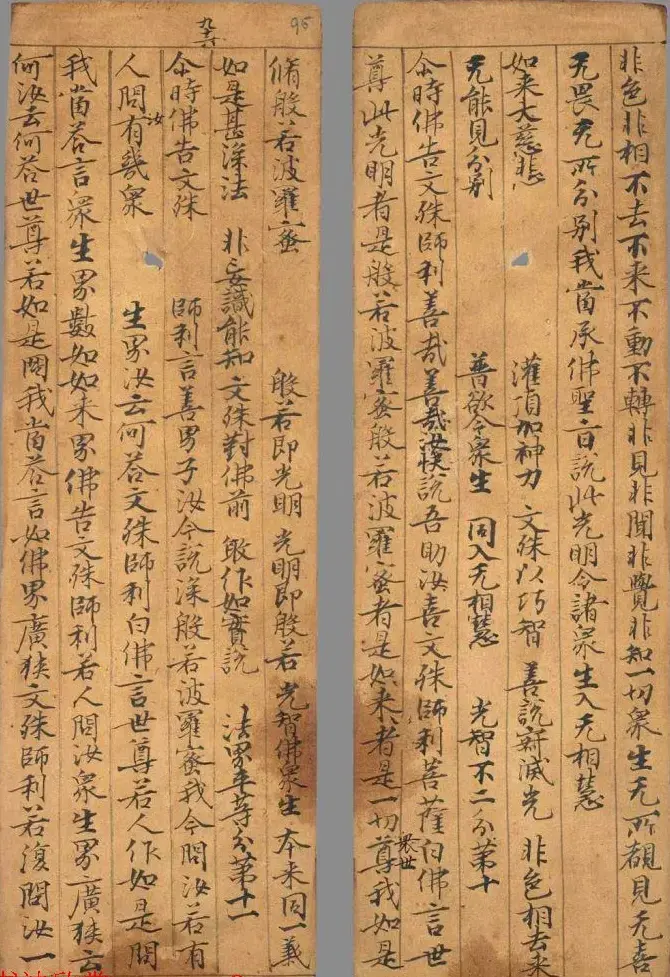 非色非相不去不来不動不轉非見非聞非覺非知一切衆生无所覩見无喜
无畏无所分别我當承佛聖旨說此光明令諸衆生入无相慧
如来大慈悲 灌頂加神力 文殊以巧智 善說寂滅光 非色相去来
无能見分别 普欲令衆生 同入无相慧 光智不二分第十
尒時佛告文殊師利善哉善哉汝快說吾助汝喜文殊師利菩薩白佛言世
尊此光明者是般若波羅蜜般若波羅蜜者是如来、者是一切衆世尊我如是
九十六
脩般若波羅蜜 般若即光明 光明即般若 光智佛衆生 本来同一義
如是甚深法 非妄識能知 文殊對佛前 敢作如實說 法界平等分第十一
尒時佛告文殊師利言善男子汝今說深般若波羅蜜我今問汝若有
人問汝有幾衆生界汝云何荅文殊師利白佛言世尊若人作如是問
我當荅言衆生界數如如来界佛告文殊師利若人問汝衆生界廣狹云
何汝云何荅世尊若如是問我當荅言如佛界廣狹文殊師利若復問汝一